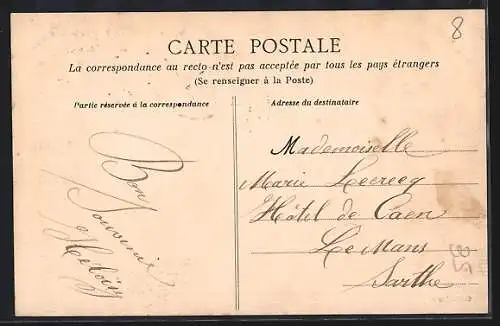 8
CARTE POSTALE
La correspondance au recto n'est pas acceptée par tous les pays étrangers
(Se renseigner à la Poste)
Partie réservée à la correspondance
Adresse du destinataire
Bon
Souvenir
Mademoiselle
Marie Lecrecq
Hôtel de Caen
Le Mans
Sarthe